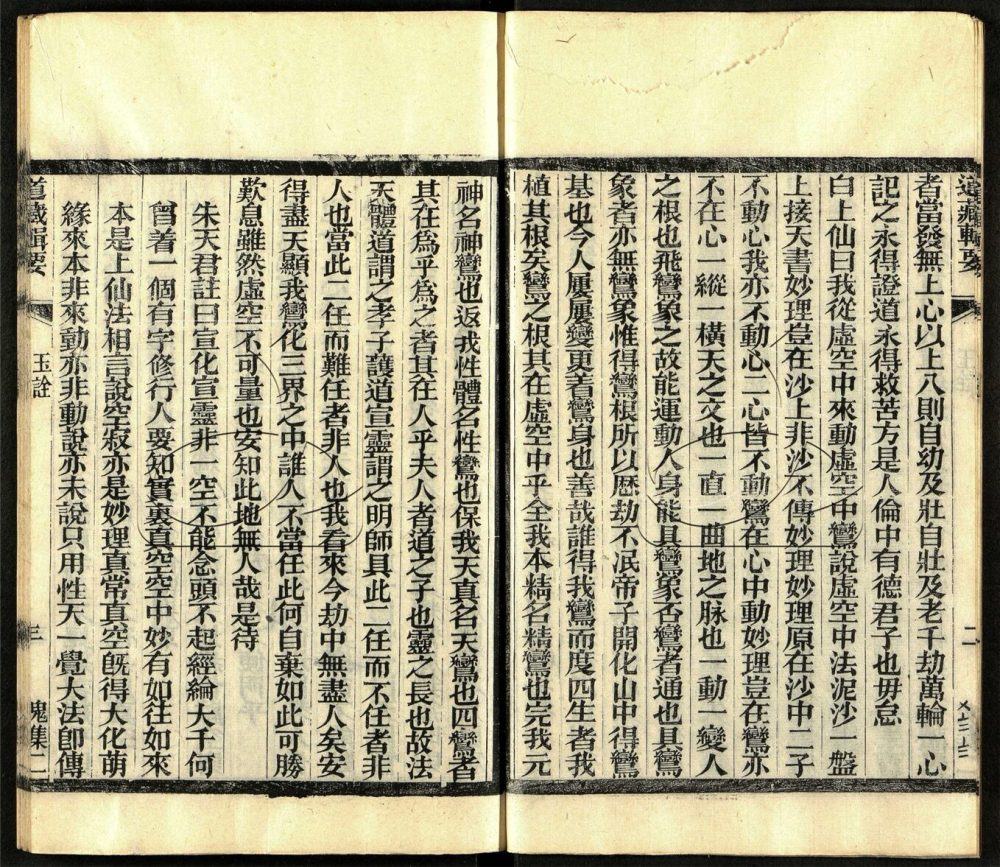 道藏輯要
二
者當發無上心以上八則自幼及壯自壯及老千劫萬輪一心
記之永得證道永得救苦方是人倫中有德君子也毋怠
白上仙曰我從虛空中來動虛空中鸞說虛空中法泥沙一盤
上接天書妙理豈在沙上非沙不傳妙理妙理原在沙中二子
不動心我亦不動心二心皆不動鸞在心中動妙理豈在鸞亦
不在心一縱一橫天之交也一直一曲地之脉也一動一變人
之根也飛鸞象之故能運動人身能具鸞象否鸞者通也具鸞
象者亦無鸞象惟得鸞根所以歷劫不泯帝子開化山中得鸞
基也今人屢屢變更着鸞身也善哉誰得我鸞而度四生者我
植其根矣鸞之根其在虛空中乎全我本精名精鸞也完我元
神名神鸞也返我性體名性鸞也保我天真名天鸞也四鸞者
其在爲乎爲之者其在人乎夫人者道之子也靈之長也故法
天體道謂之孝子護道宣靈謂之明師具此二任而不任者非
人也當此二任而難任者非人也我看來今劫中無盡人矣安
得盡天顯我鸞化三界之中誰人不當任此何自棄如此可勝
歎息雖然虛空不可量也安知此地無人哉是待
朱天君註曰宣化宣靈非一空不能念頭不起經綸大千何
曾着一個有字修行人要知實裏真空空中妙有如往如來
本是上仙法相言說空寂亦是妙理真常真空旣得大化萌
緣來本非來動亦非動說亦未說只用性天一覺大法卽傳
道藏輯要
玉詮
三
鬼集二